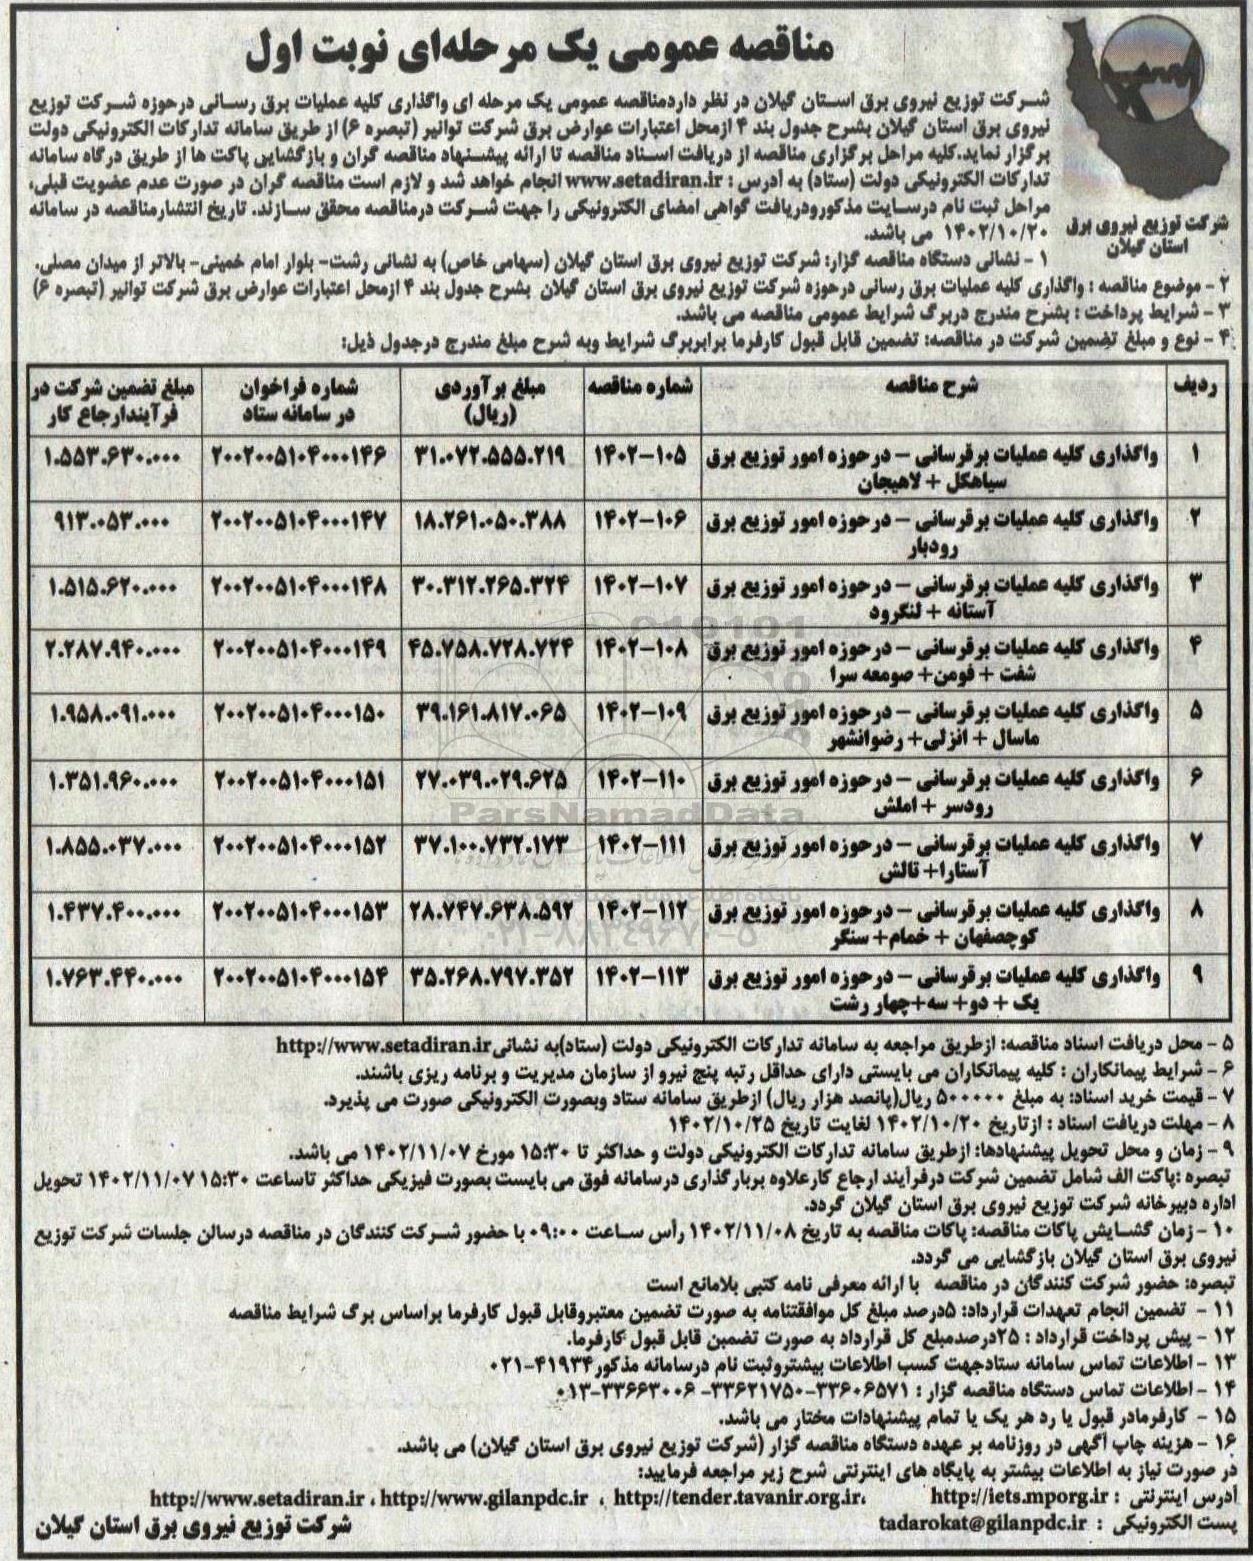 مناقصه عمومی یک مرحله‌ای نوبت اول
شرکت توزیع نیروی برق
استان گیلان
شرکت توزیع نیروی برق استان گیلان در نظر داردمناقصه عمومی یک مرحله ای واگذاری کلیه عملیات برق رسانی درحوزه شرکت توزیع
نیروی برق استان گیلان بشرح جدول بند ۴ ازمحل اعتبارات عوارض برق شرکت توانیر (تبصره ۶) از طریق سامانه تدارکات الکترونیکی دولت
برگزار نماید.کلیه مراحل برگزاری مناقصه از دریافت اسناد مناقصه تا ارائه پیشنهاد مناقصه گران و بازگشایی پاکت ها از طریق درگاه سامانه
تدارکات الکترونیکی دولت (ستاد) به آدرس : www.setadiran.ir انجام خواهد شد و لازم است مناقصه گران در صورت عدم عضویت قبلی،
مراحل ثبت نام درسایت مذکورودریافت گواهی امضای الکترونیکی را جهت شرکت درمناقصه محقق سازند. تاریخ انتشارمناقصه در سامانه
۱۴۰۲/۱۰/۲۰ می باشد.
۱ - نشانی دستگاه مناقصه گزار: شرکت توزیع نیروی برق استان گیلان (سهامی خاص) به نشانی رشت- بلوار امام خمینی- بالاتر از میدان مصلی.
۲ - موضوع مناقصه : واگذاری کلیه عملیات برق رسانی درحوزه شرکت توزیع نیروی برق استان گیلان بشرح جدول بند ۴ ازمحل اعتبارات عوارض برق شرکت توانیر (تبصره ۶)
۳ - شرایط پرداخت : بشرح مندرج دربرگ شرایط عمومی مناقصه می باشد.
۴ - نوع و مبلغ تضمین شرکت در مناقصه: تضمین قابل قبول کارفرما برابربرگ شرایط وبه شرح مبلغ مندرج درجدول ذیل:
ردیف شرح مناقصه شماره مناقصه مبلغ برآوردی (ریال) شماره فراخوان در سامانه ستاد مبلغ تضمین شرکت در فرآیندارجاع کار
۱ واگذاری کلیه عملیات برقرسانی – درحوزه امور توزیع برق سیاهکل + لاهیجان ۱۴۰۲–۱۰۵ ۳۱.۰۷۲.۵۵۵.۲۱۹ ۲۰۰۲۰۰۵۱۰۴۰۰۰۱۴۶ ۱.۵۵۳.۶۳۰.۰۰۰
۲ واگذاری کلیه عملیات برقرسانی – درحوزه امور توزیع برق رودبار ۱۴۰۲–۱۰۶ ۱۸.۲۶۱.۰۵۰.۳۸۸ ۲۰۰۲۰۰۵۱۰۴۰۰۰۱۴۷ ۹۱۳.۰۵۳.۰۰۰
۳ واگذاری کلیه عملیات برقرسانی – درحوزه امور توزیع برق آستانه + لنگرود ۱۴۰۲–۱۰۷ ۳۰.۳۱۲.۲۶۵.۳۲۴ ۲۰۰۲۰۰۵۱۰۴۰۰۰۱۴۸ ۱.۵۱۵.۶۲۰.۰۰۰
۴ واگذاری کلیه عملیات برقرسانی – درحوزه امور توزیع برق شفت + فومن+ صومعه سرا ۱۴۰۲–۱۰۸ ۴۵.۷۵۸.۷۲۸.۷۲۴ ۲۰۰۲۰۰۵۱۰۴۰۰۰۱۴۹ ۲.۲۸۷.۹۴۰.۰۰۰
۵ واگذاری کلیه عملیات برقرسانی – درحوزه امور توزیع برق ماسال + انزلی+ رضوانشهر ۱۴۰۲–۱۰۹ ۳۹.۱۶۱.۸۱۷.۰۶۵ ۲۰۰۲۰۰۵۱۰۴۰۰۰۱۵۰ ۱.۹۵۸.۰۹۱.۰۰۰
۶ واگذاری کلیه عملیات برقرسانی – درحوزه امور توزیع برق رودسر + املش ۱۴۰۲–۱۱۰ ۲۷.۰۳۹.۰۲۹.۶۲۵ ۲۰۰۲۰۰۵۱۰۴۰۰۰۱۵۱ ۱.۳۵۱.۹۶۰.۰۰۰
۷ واگذاری کلیه عملیات برقرسانی – درحوزه امور توزیع برق آستارا+ تالش ۱۴۰۲–۱۱۱ ۳۷.۱۰۰.۷۳۲.۱۷۳ ۲۰۰۲۰۰۵۱۰۴۰۰۰۱۵۲ ۱.۸۵۵.۰۳۷.۰۰۰
۸ واگذاری کلیه عملیات برقرسانی – درحوزه امور توزیع برق کوچصفهان + خمام+ سنگر ۱۴۰۲–۱۱۲ ۲۸.۷۴۷.۶۳۸.۵۹۲ ۲۰۰۲۰۰۵۱۰۴۰۰۰۱۵۳ ۱.۴۳۷.۴۰۰.۰۰۰
۹ واگذاری کلیه عملیات برقرسانی – درحوزه امور توزیع برق یک + دو+ سه+چهار رشت ۱۴۰۲–۱۱۳ ۳۵.۲۶۸.۷۹۷.۳۵۲ ۲۰۰۲۰۰۵۱۰۴۰۰۰۱۵۴ ۱.۷۶۳.۴۴۰.۰۰۰
ParsNamadData
۰۲۱-۸۸۳۴۹۶۷۰-۵
۵ - محل دریافت اسناد مناقصه: ازطریق مراجعه به سامانه تدارکات الکترونیکی دولت (ستاد)به نشانیhttp://www.setadiran.ir
۶ - شرایط پیمانکاران : کلیه پیمانکاران می بایستی دارای حداقل رتبه پنج نیرو از سازمان مدیریت و برنامه ریزی باشند.
۷ - قیمت خرید اسناد: به مبلغ ۵۰۰۰۰۰ ریال(پانصد هزار ریال) ازطریق سامانه ستاد وبصورت الکترونیکی صورت می پذیرد.
۸ - مهلت دریافت اسناد : ازتاریخ ۱۴۰۲/۱۰/۲۰ لغایت تاریخ ۱۴۰۲/۱۰/۲۵
۹ - زمان و محل تحویل پیشنهادها: ازطریق سامانه تدارکات الکترونیکی دولت و حداکثر تا ۱۵:۳۰ مورخ ۱۴۰۲/۱۱/۰۷ می باشد.
تبصره :پاکت الف شامل تضمین شرکت درفرآیند ارجاع کارعلاوه بربارگذاری درسامانه فوق می بایست بصورت فیزیکی حداکثر تاساعت ۱۵:۳۰ ۱۴۰۲/۱۱/۰۷ تحویل
اداره دبیرخانه شرکت توزیع نیروی برق استان گیلان گردد.
۱۰ - زمان گشایش پاکات مناقصه: پاکات مناقصه به تاریخ ۱۴۰۲/۱۱/۰۸ رأس ساعت ۰۹:۰۰ با حضور شرکت کنندگان در مناقصه درسالن جلسات شرکت توزیع
نیروی برق استان گیلان بازگشایی می گردد.
تبصره: حضور شرکت کنندگان در مناقصه با ارائه معرفی نامه کتبی بلامانع است
۱۱ - تضمین انجام تعهدات قرارداد: ۵درصد مبلغ کل موافقتنامه به صورت تضمین معتبروقابل قبول کارفرما براساس برگ شرایط مناقصه
۱۲ - پیش پرداخت قرارداد : ۲۵درصدمبلغ کل قرارداد به صورت تضمین قابل قبول کارفرما.
۱۳ - اطلاعات تماس سامانه ستادجهت کسب اطلاعات بیشتروثبت نام درسامانه مذکور۴۱۹۳۴-۰۲۱
۱۴ - اطلاعات تماس دستگاه مناقصه گزار : ۳۳۶۰۶۵۷۱-۳۳۶۲۱۷۵۰- ۳۳۶۶۳۰۰۶-۰۱۳
۱۵ - کارفرمادر قبول یا رد هر یک یا تمام پیشنهادات مختار می باشد.
۱۶ - هزینه چاپ آگهی در روزنامه بر عهده دستگاه مناقصه گزار (شرکت توزیع نیروی برق استان گیلان) می باشد.
در صورت نیاز به اطلاعات بیشتر به پایگاه های اینترنتی شرح زیر مراجعه فرمایید:
آدرس اینترنتی : http://iets.mporg.ir ،http://tender.tavanir.org.ir ، http://www.gilanpdc.ir ، http://www.setadiran.ir
پست الکترونیکی : tadarokat@gilanpdc.ir
شرکت توزیع نیروی برق استان گیلان